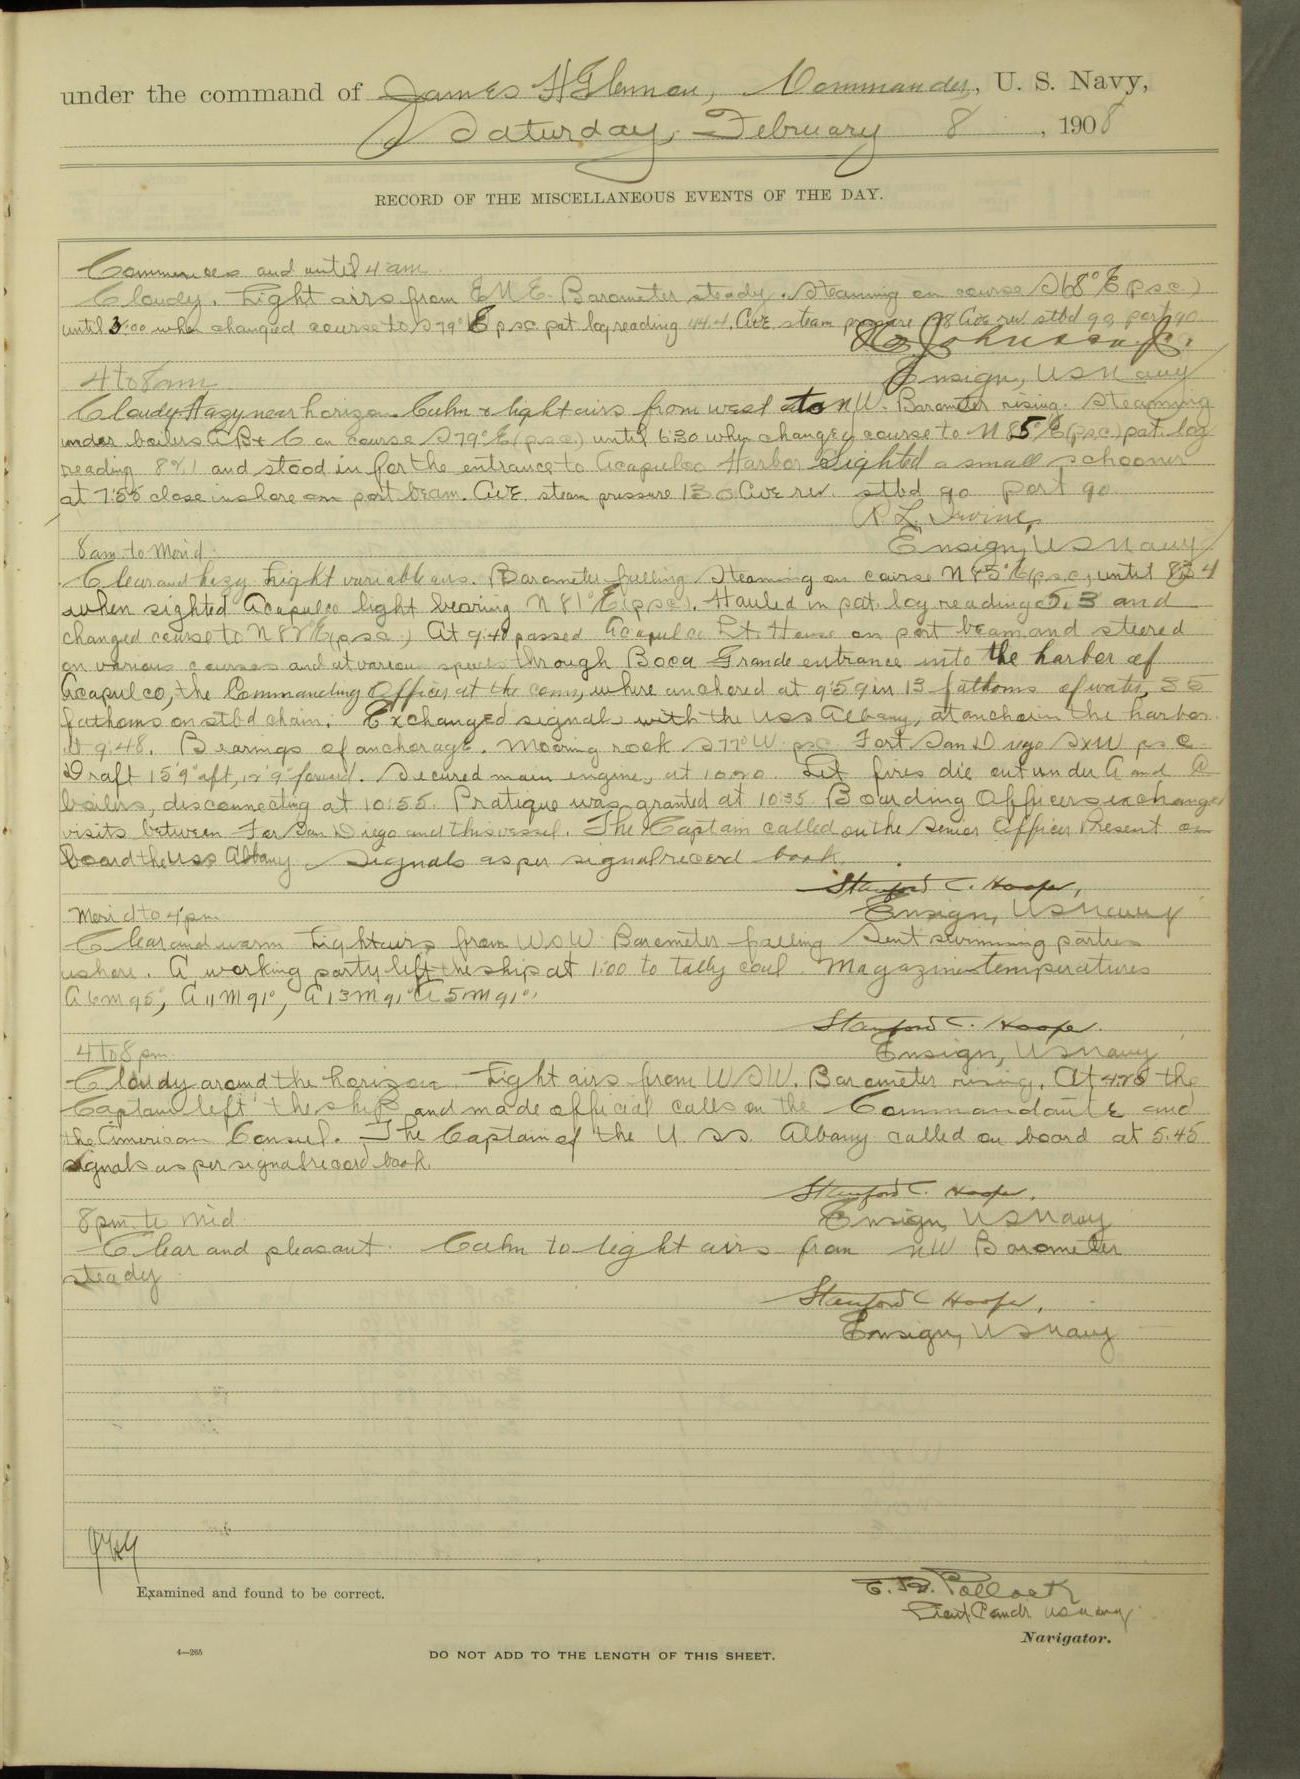 under the command of James H Glennon, Commander, U. S. Navy,
Saturday, February 8, 1908
RECORD OF THE MISCELLANEOUS EVENTS OF THE DAY.
Commences and until 4 am
Cloudy. Light airs from ENE. Barometer steady. Steaming on course S 68° E (psc)
until 3:00 when changed course to S 79° E psc pat log reading 44.4. Ave steam pressure Ave rev stbd 90, port 90
Johnson Jr.
Ensign, US Navy
4 to 8 am
Cloudy Hazy near horizon. Calm & light airs from west to NW. Barometer rising. Steaming
under boilers A B & C on course S 79° E (psc) until 6:30 when changed course to N 85° E (psc) pat. log
reading 82.1 and stood in for the entrance to Acapulco Harbor Sighted a small schooner
at 7:55 close inshore on port beam. Ave steam pressure 130 Ave rev. stbd 90 port 90
R L Irvine,
Ensign, US Navy
8 am to Merid
Clear and hazy Light variable airs. Barometer falling Steaming on course N 85° E (psc) until
when sighted Acapulco light bearing N 81° E (psc). Hauled in pat. log reading 5.3 and
changed course to N 82° E (psc) At 9:40 passed Acapulco Lt. House on port beam and steered
on various courses and at various speeds through Boca Grande entrance into the harbor of
Acapulco, the Commanding Officer at the conn, where anchored at 9:59 in 13 fathoms of water, 35
fathoms on stbd chain. Exchanged signals with the USS Albany, at anchor in the harbor
at 9:48. Bearings of anchorage. Mooring rock S 77° W psc Fort San Diego SxW psc
Draft 15' 9" aft, 12' 9" forward. Secured main engines at 10:20 Let fires die out under A and
boilers, disconnecting at 10:55. Pratique was granted at 10:35 Boarding Officers exchanged
visits between For San Diego and this vessel. The Captain called on the Senior Officer Present on
board the USS Albany. Signals as per signal record book.
Stanford C. Hooper,
Ensign, US Navy
Merid to 4 pm
Clear and warm Light airs from WSW Barometer falling Sent swimming parties
ashore. A working party left the ship at 1:00 to tally coal Magazine temperatures
A 6 M 95°, A 11 M 91°, A 13 M 91° A 5 M 91°
Stanford C. Hooper.
Ensign, US Navy
4 to 8 pm
Cloudy around the horizon. Light airs from WSW. Barometer rising. At 4:28 the
Captain left the ship and made official calls on the Commandante and
the American Consul. The Captain of the U.SS. Albany called on board at 5:45
Signals as per signal record book.
Stanford C. Hooper.
Ensign, US Navy
8 pm to Mid
Clear and pleasant. Calm to light airs from NW Barometer
steady
Stanford C Hooper,
Ensign, US Navy
JHG
Examined and found to be correct.
Pollock
Lieut. Comdr US Navy
Navigator.
4—265
DO NOT ADD TO THE LENGTH OF THIS SHEET.